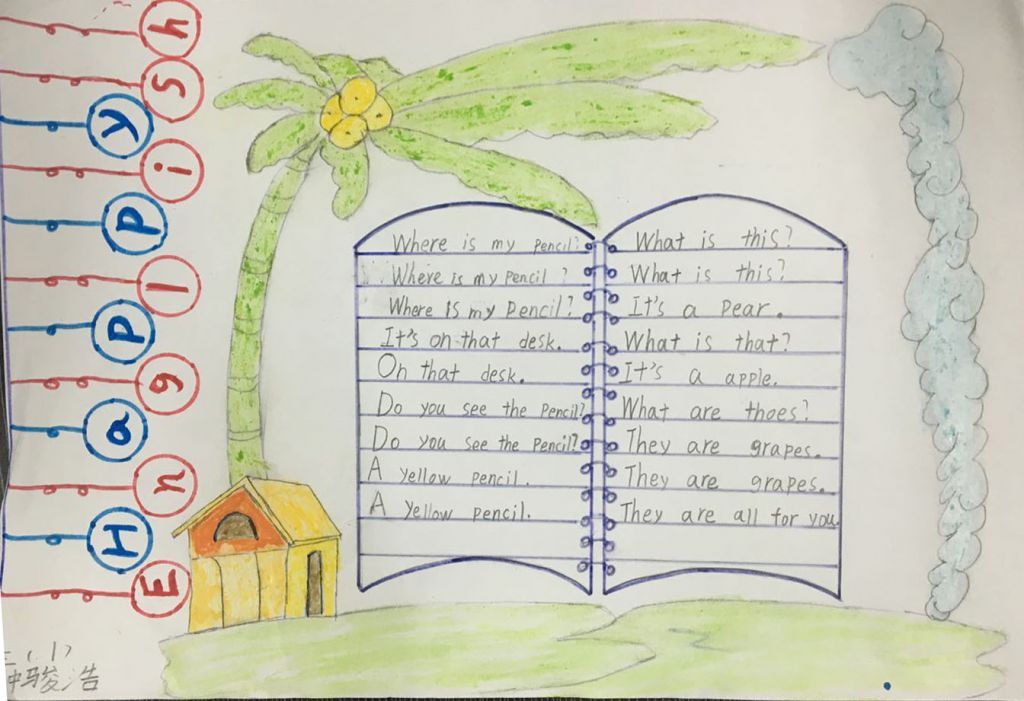 HaPPy
English
Where is my pencil?
Where is my pencil ?
Where is my pencil?
It's on that desk.
On that desk.
Do you see the pencil?
Do you see the pencil?
A yellow pencil.
A yellow pencil.
What is this?
What is this?
It's a pear.
What is that?
It's a apple.
What are thoes?
They are grapes.
They are grapes.
They are all for you.
(1)
骏浩